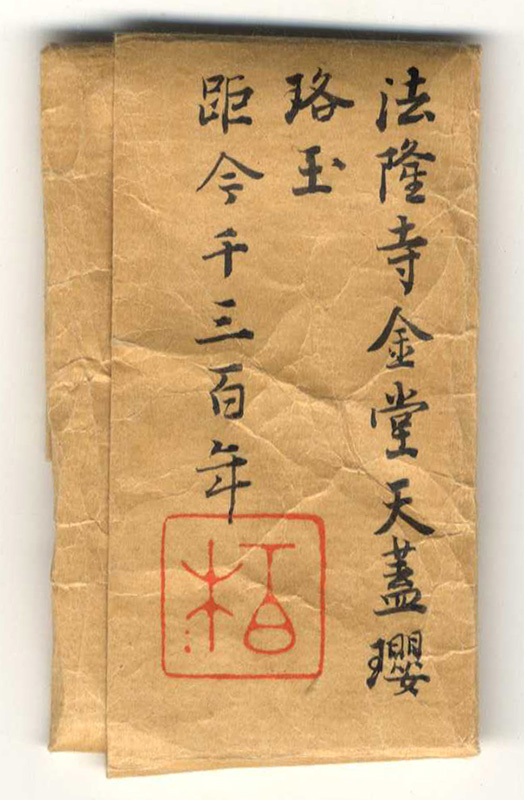 法隆寺金堂天蓋瓔
珞玉
距今千三百年